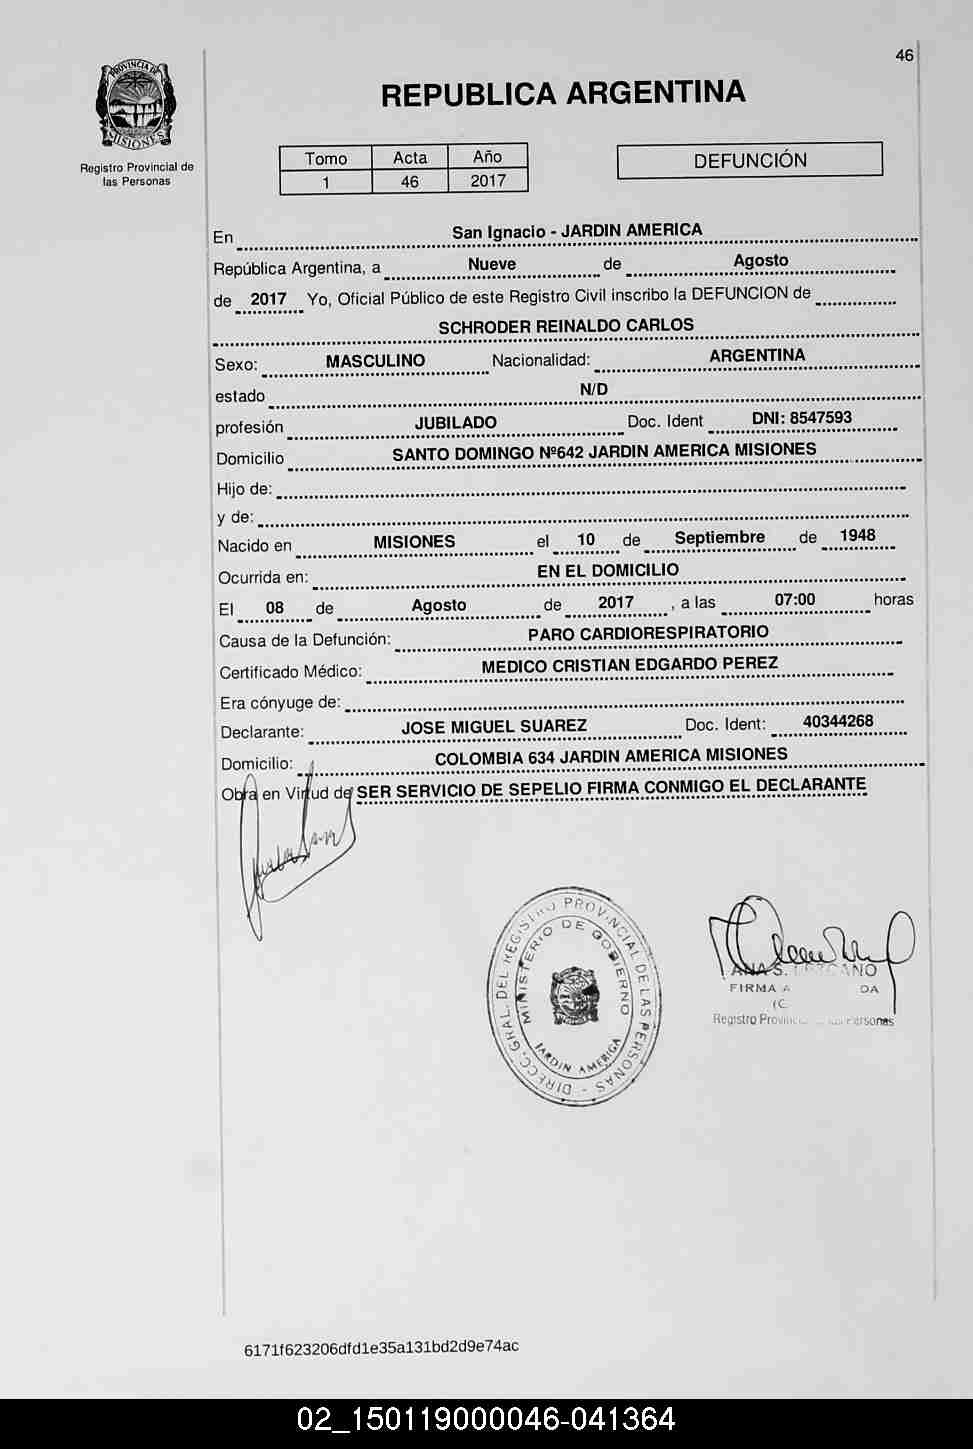 46
PROVINCIA DE
MISIONES
Registro Provincial de
las Personas
REPUBLICA ARGENTINA
Tomo Acta Año
1 46 2017
DEFUNCIÓN
En San Ignacio - JARDIN AMERICA
República Argentina, a Nueve de Agosto
de 2017 Yo, Oficial Público de este Registro Civil inscribo la DEFUNCION de
SCHRODER REINALDO CARLOS
Sexo: MASCULINO Nacionalidad: ARGENTINA
estado N/D
profesión JUBILADO Doc. Ident DNI: 8547593
Domicilio SANTO DOMINGO Nº642 JARDIN AMERICA MISIONES
Hijo de:
y de:
Nacido en MISIONES el 10 de Septiembre de 1948
Ocurrida en: EN EL DOMICILIO
El 08 de Agosto de 2017 , a las 07:00 horas
Causa de la Defunción: PARO CARDIORESPIRATORIO
Certificado Médico: MEDICO CRISTIAN EDGARDO PEREZ
Era cónyuge de:
Declarante: JOSE MIGUEL SUAREZ Doc. Ident: 40344268
Domicilio: COLOMBIA 634 JARDIN AMERICA MISIONES
Obra en Virtud de SER SERVICIO DE SEPELIO FIRMA CONMIGO EL DECLARANTE
DIRECC. GRAL. DEL REGISTRO PROVINCIAL DE LAS PERSONAS -
MINISTERIO DE GOBIERNO
JARDIN AMERICA
ANA S.
FIRMA A DA
Registro Personas
6171f623206dfd1e35a131bd2d9e74ac
02_150119000046-041364